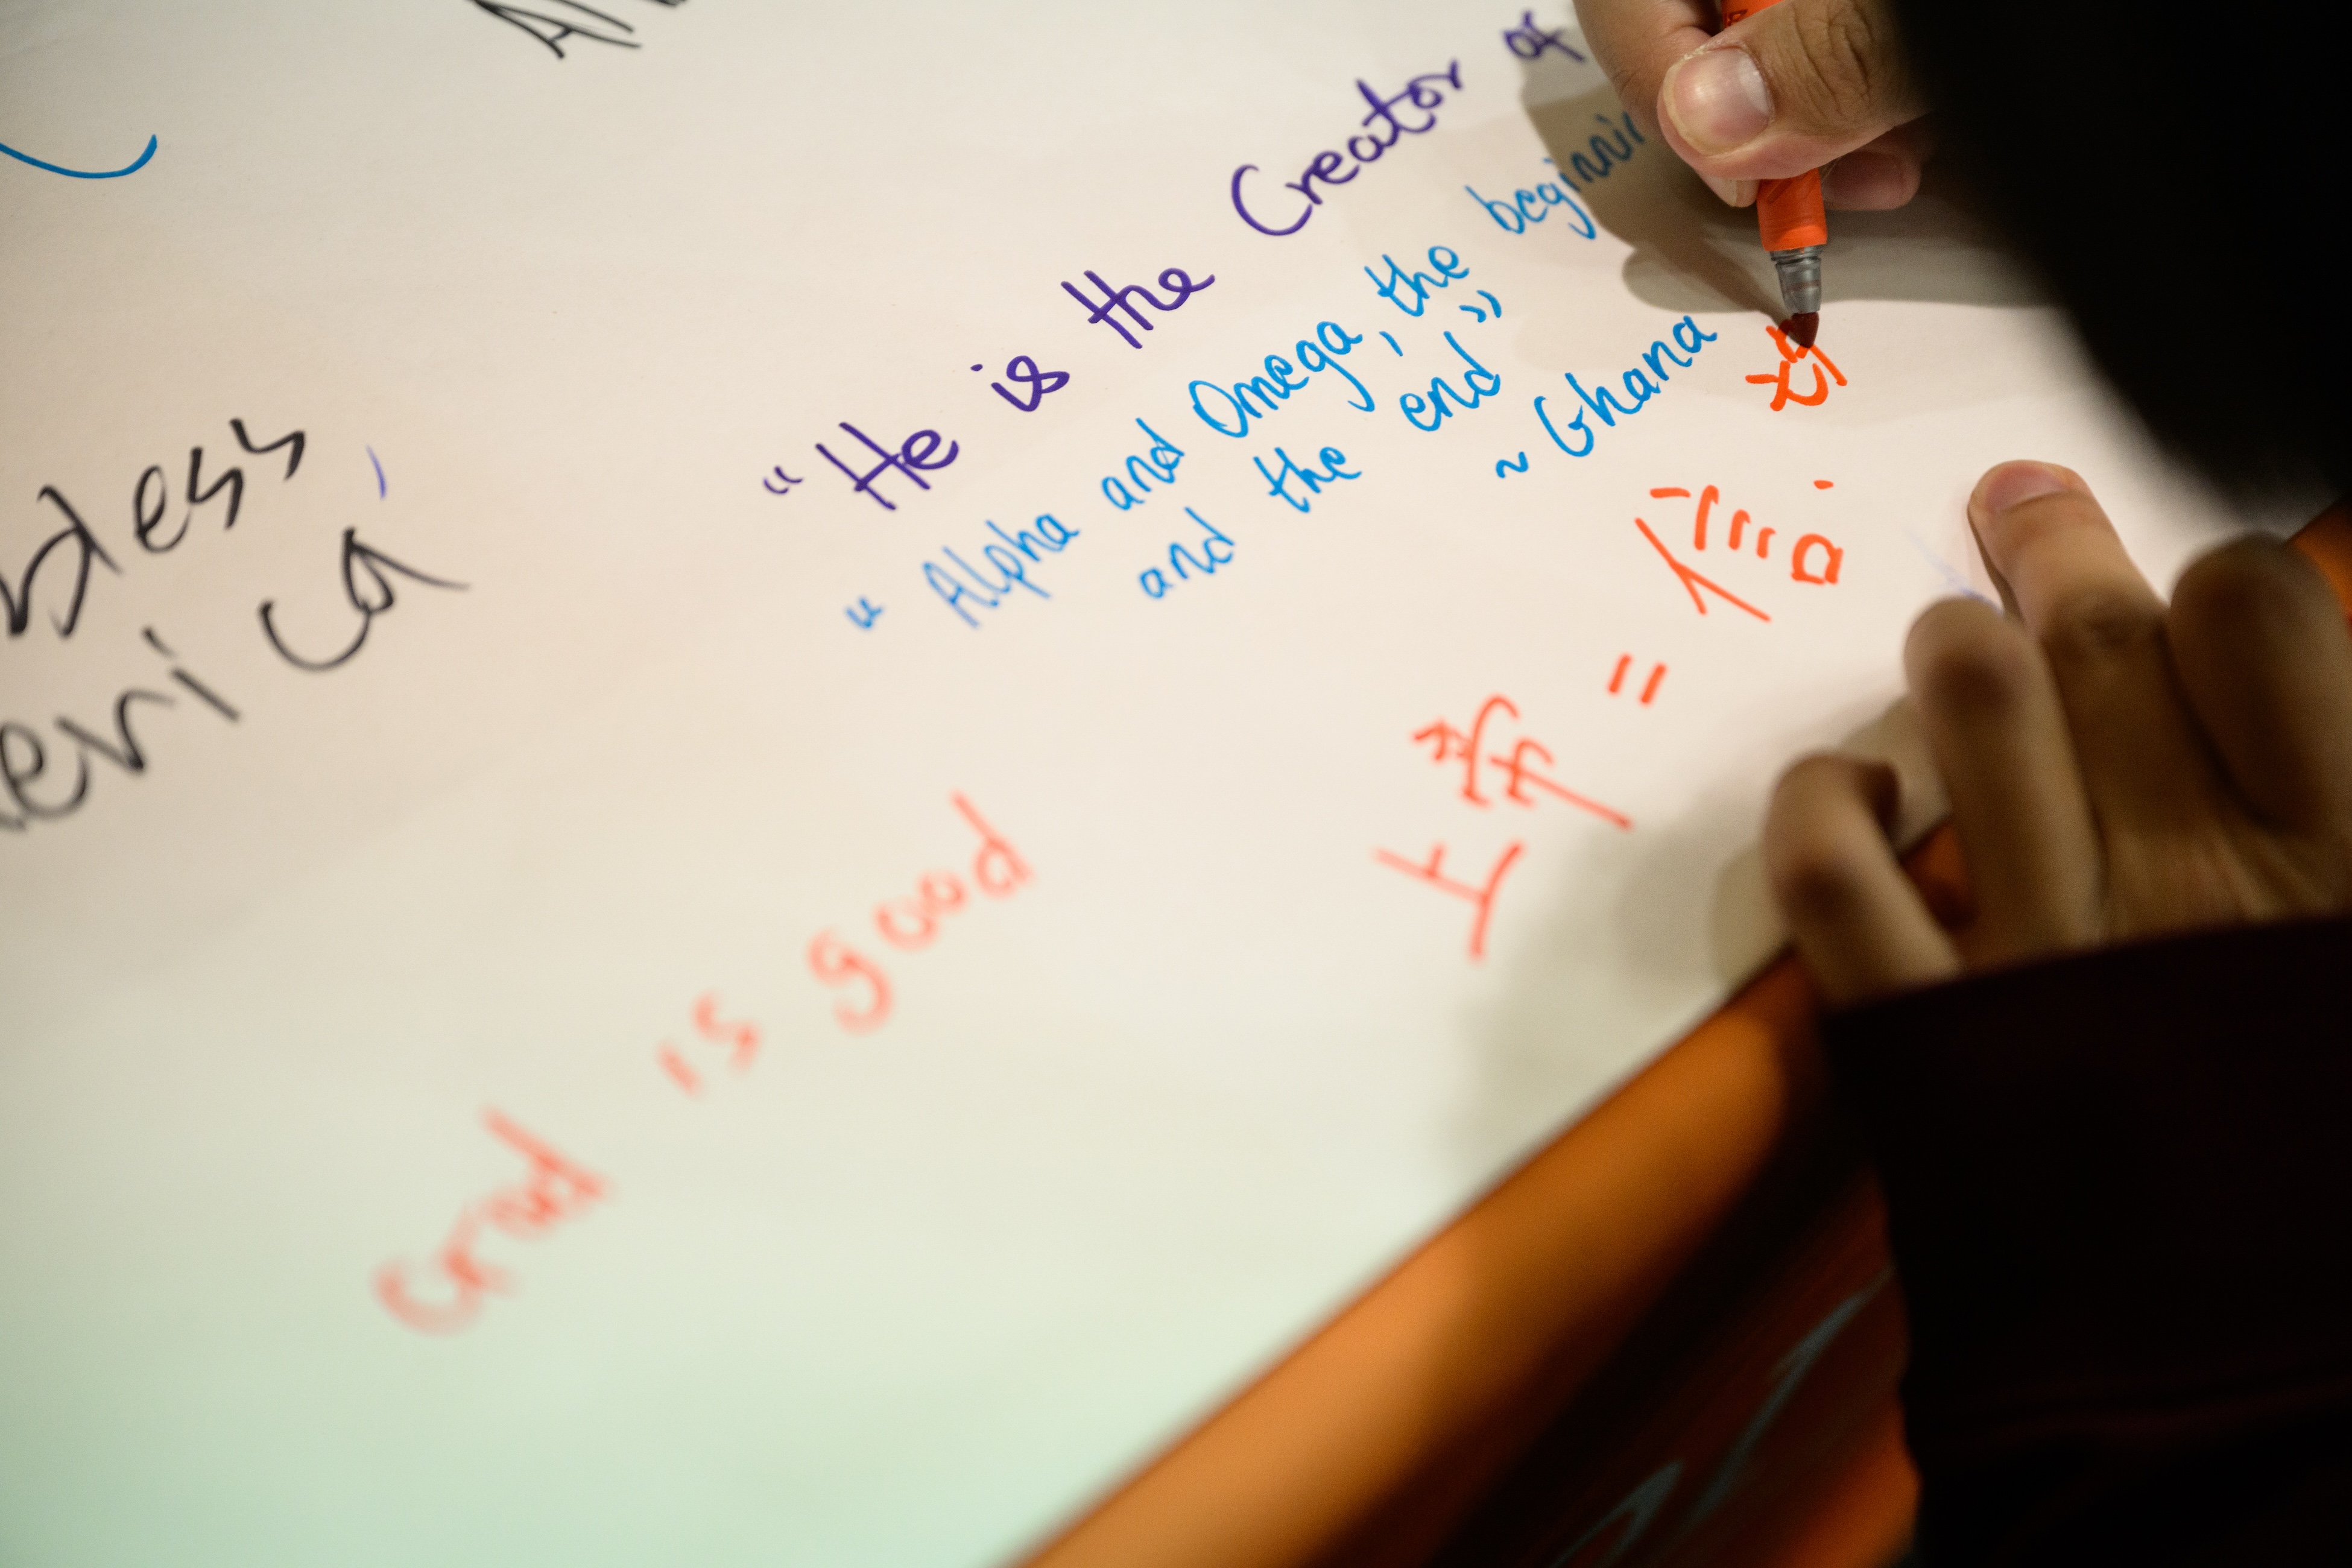 bless,
erica
"He is the Creator of
"Alpha and Omega, the beginnin
and the end"
~ Ghana
上帝 = 信
God is good